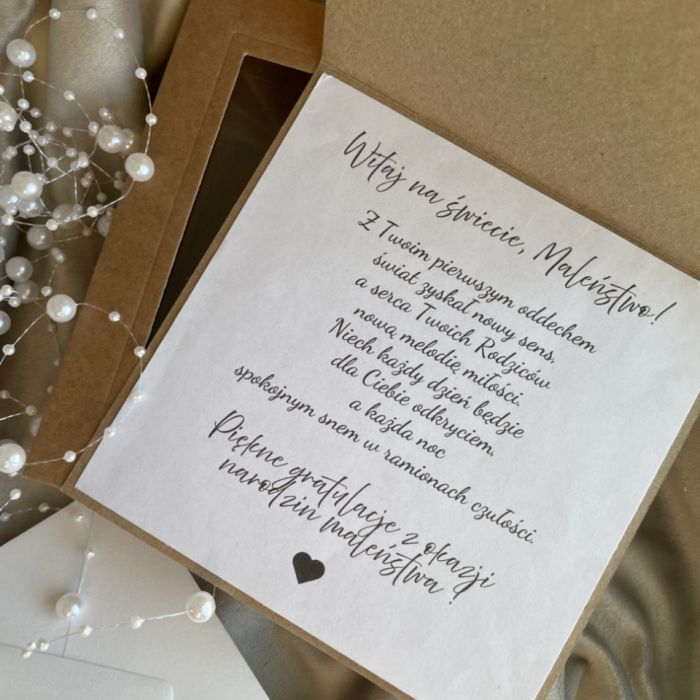 Witaj na świecie, Maleństwo!
Z Twoim pierwszym oddechem
świat zyskał nowy sens,
a serca Twoich Rodziców
nową melodię miłości.
Niech każdy dzień będzie
dla Ciebie odkryciem,
a każda noc
spokojnym snem w ramionach czułości.
Piękne gratulacje z okazji
narodzin maleństwa!